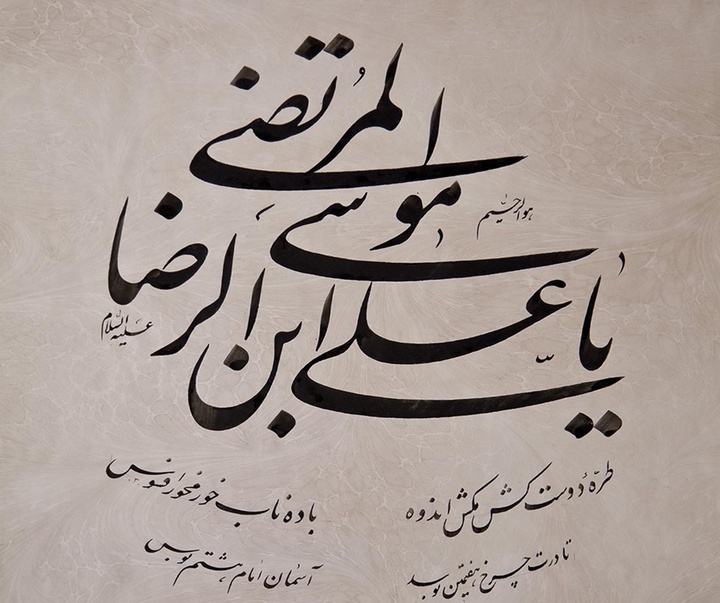 هوالرحیم
یا علی ابن موسی الرضا المرتضی
علیه السلام
طرّهٔ دوست کش مکش اندوه
باده ناب خور مخور افسوس
تا درت چرخ هفتمین بوسد
آسمان امام هشتم بوس